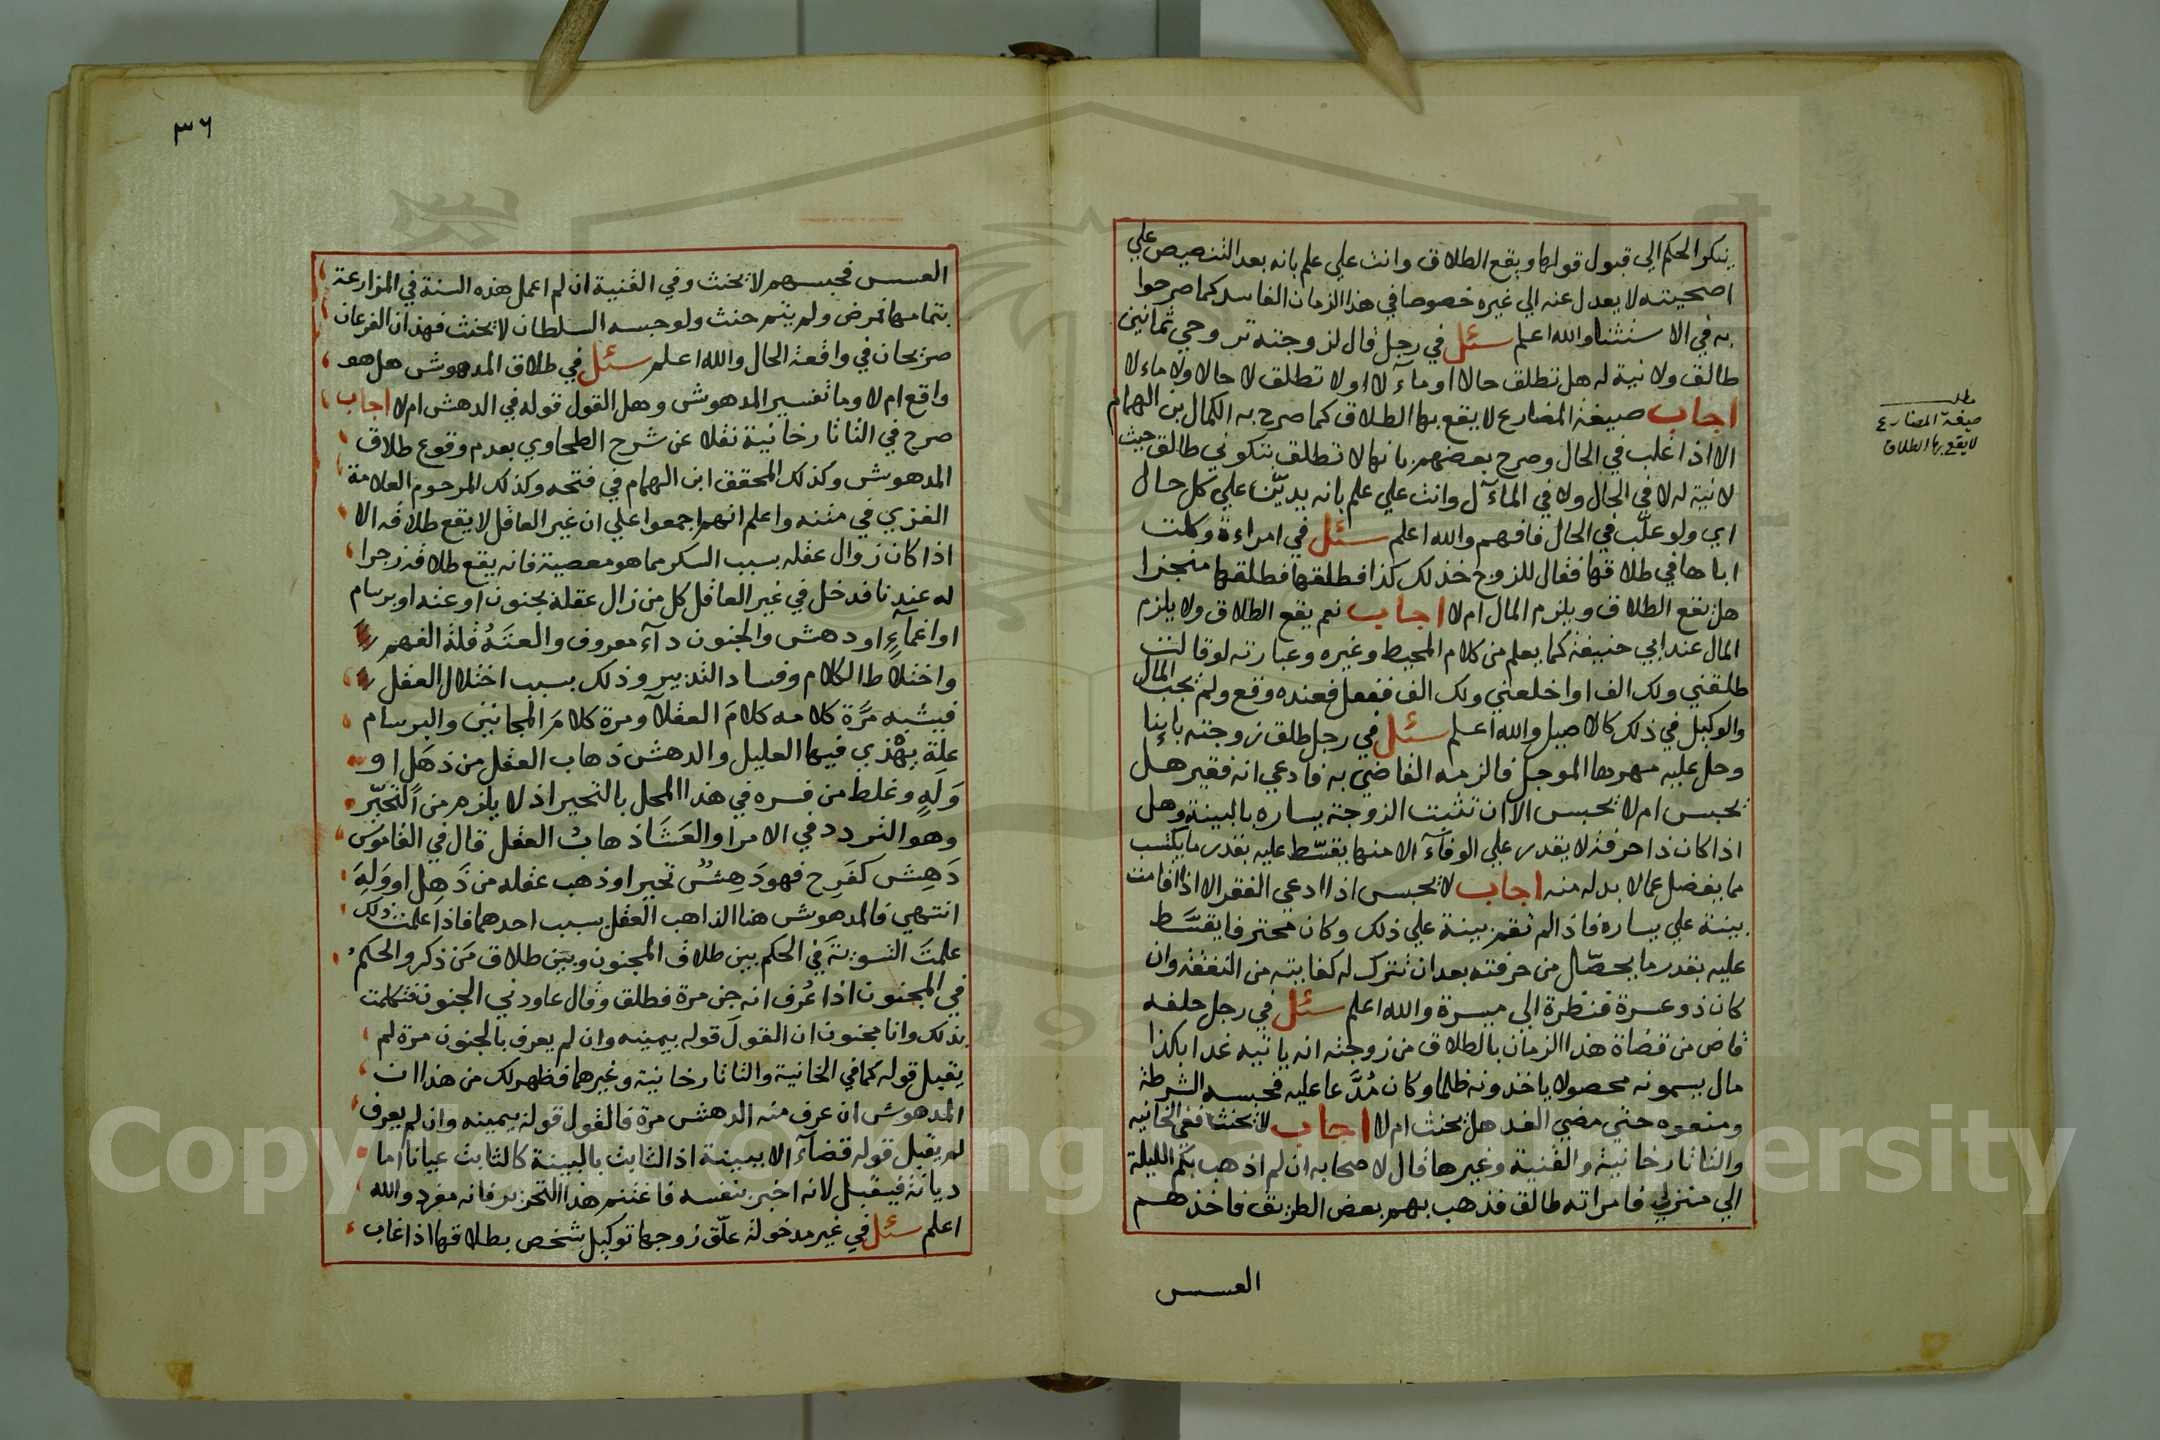 ينكر الحكم الي قبول قولها ويقع الطلاق وانت علي علم بانه بعد التنصيص علي
اصحيته لا يعدل عنه الي غيره خصوصا في هذا الزمان الفاسد كما صرحوا
به في الاستثنا والله اعلم سئل في رجل قال لزوجته تروحي ثمانين
طالق ولا نية له هل تطلق حالا او مآ لا او لا تطلق لا حالا ولا ماء لا
اجاب صيغة المضارع لا يقع بها الطلاق كما صرح به الكمال بن الهمام
الا اذا غلب في الحال وصرح بعضهم بانها لا تطلق بتكوني طالق حيث
لا نية له لا في الحال ولا في المآل وانت علي علم بانه يديّن علي كل حال
اي ولو غلب في الحال فافهم والله اعلم سئل في امراءة وكلت
اباها في طلاقها فقال للزوج خذ لك كذا فطلقها فطلقها منجزا
هل يقع الطلاق ويلزم المال ام لا اجاب نعم يقع الطلاق ولا يلزم
المال عند ابي حنيفة كما يعلم من كلام المحيط وغيره وعبارته لو قالت
طلقني ولك الف او اخلعني ولك الف ففعل فعنده وقع ولم يجب المال
والوكيل في ذلك كالاصيل والله اعلم سئل في رجل طلق زوجته باينا
وحل عليه مهرها الموجل فالزمه القاضي به فادعي انه فقير هل
يحبس ام لا يحبس الا ان تثبت الزوجة يساره بالبينة وهل
اذا كان ذا حرفة لا يقدر علي الوفآء الا منها يقسّط عليه بقدر ما يكتسب
مما يفضل عما لا بد له منه اجاب لا يحبس اذا ادعي الفقر الا اذا اقامت
بينة علي يساره فاذا لم تقم بينة علي ذلك وكان محترفا يقسَّط
عليه بقدر ما يحصّل من حرفته بعد ان تترك له كفايته من النفقة وان
كان ذو عسرة فنظرة الي ميسرة والله اعلم سئل في رجل حلفه
قاض من قضاة هذا الزمان بالطلاق من زوجته انه ياتيه غدا بكذا
مال يسمونه محصولا ياخذونه ظلما وكان مُدَّعا عليه فحبسه الشرطة
ومنعوه حتي مضي الغد هل يحنث ام لا اجاب لا يحنث ففي الخانيه
والتاتارخانية والقنية وغيرها قال لاصحابه ان لم اذهب بكم الليلة
الي منزلي فامراته طالق فذهب بهم بعض الطريق فاخذهم
العسس
مطلب
صيغة المضارع
لا يقع بها الطلاق
٣٦
العسس فحبسهم لا يحنث وفي القنية ان لم اعمل هذه السنة في المزارعة
بتمامها فمرض ولم يتم حنث ولو حبسه السلطان لا يحنث فهذان الفرعان
صريحان في واقعة الحال والله اعلم سئل في طلاق المدهوش هل هو
واقع ام لا وما تفسير المدهوش وهل القول قوله في الدهش ام لا اجاب
صرح في التاتارخانية نقلا عن شرح الطحاوي بعدم وقوع طلاق
المدهوش وكذلك المحقق ابن الهمام في فتحه وكذلك المرحوم العلامة
الغزي في متنه واعلم انهم اجمعوا علي ان غير العاقل لا يقع طلاقه الا
اذا كان زوال عقله بسبب السكر مما هو معصية فانه يقع طلاقه زجرا
له عندنا فدخل في غير العاقل كل من زال عقله بجنون او عته او برسام
او اغمآءٍ او دهش والجنون دآء معروف والعتَهُ قلة الفهم
واختلاط الكلام وفساد التدبير وذلك بسبب اختلال العقل
فيشبه مرَّة كلامه كلامَ العقلا ومرة كلامَ المجانين والبرسام
علة يهْذي فيها العليل والدهش ذهاب العقل من ذهَلٍ او
وَلَهٍ وغلط من فسره في هذا المحل بالتحير اذ لا يلزم من التحيّر
وهو التردد في الامر والغشا ذهابُ العقل قال في القاموس
دَهِشَ كفَرِح فهو دَهِشٌ تحير او ذهب عقله من ذَهلٍ او وَلهَ
انتهي فالمدهوش هنا الذاهب العقل بسبب احدهما فاذا علمت ذلك
علمتَ التسوية في الحكم بين طلاق المجنون وبين طلاق مَن ذكر والحكم
في المجنون اذا عُرف انه جن مرة فطلق وقال عاودني الجنون فتكلمت
بذلك وانا مجنون ان القولَ قوله بيمينه وان لم يعرف بالجنون مرة لم
يقبل قوله كما في الخانية والتاتارخانية وغيرهما فظهر لك من هذا ان
المدهوش ان عرف منه الدهش مرة فالقول قوله بيمينه وان لم يعرف
لم يقبل قوله قضآء الا ببينة اذ الثابت بالبينة كالثابت عيانا اما
ديانة فيقبل لانه اخبر بنفسه فاغتنم هذا التحرير فانه مفرد والله
اعلم سئل في غير مدخولة علّق زوجها توكيل شخص بطلاقها اذا غاب
Copyright © King Saud University